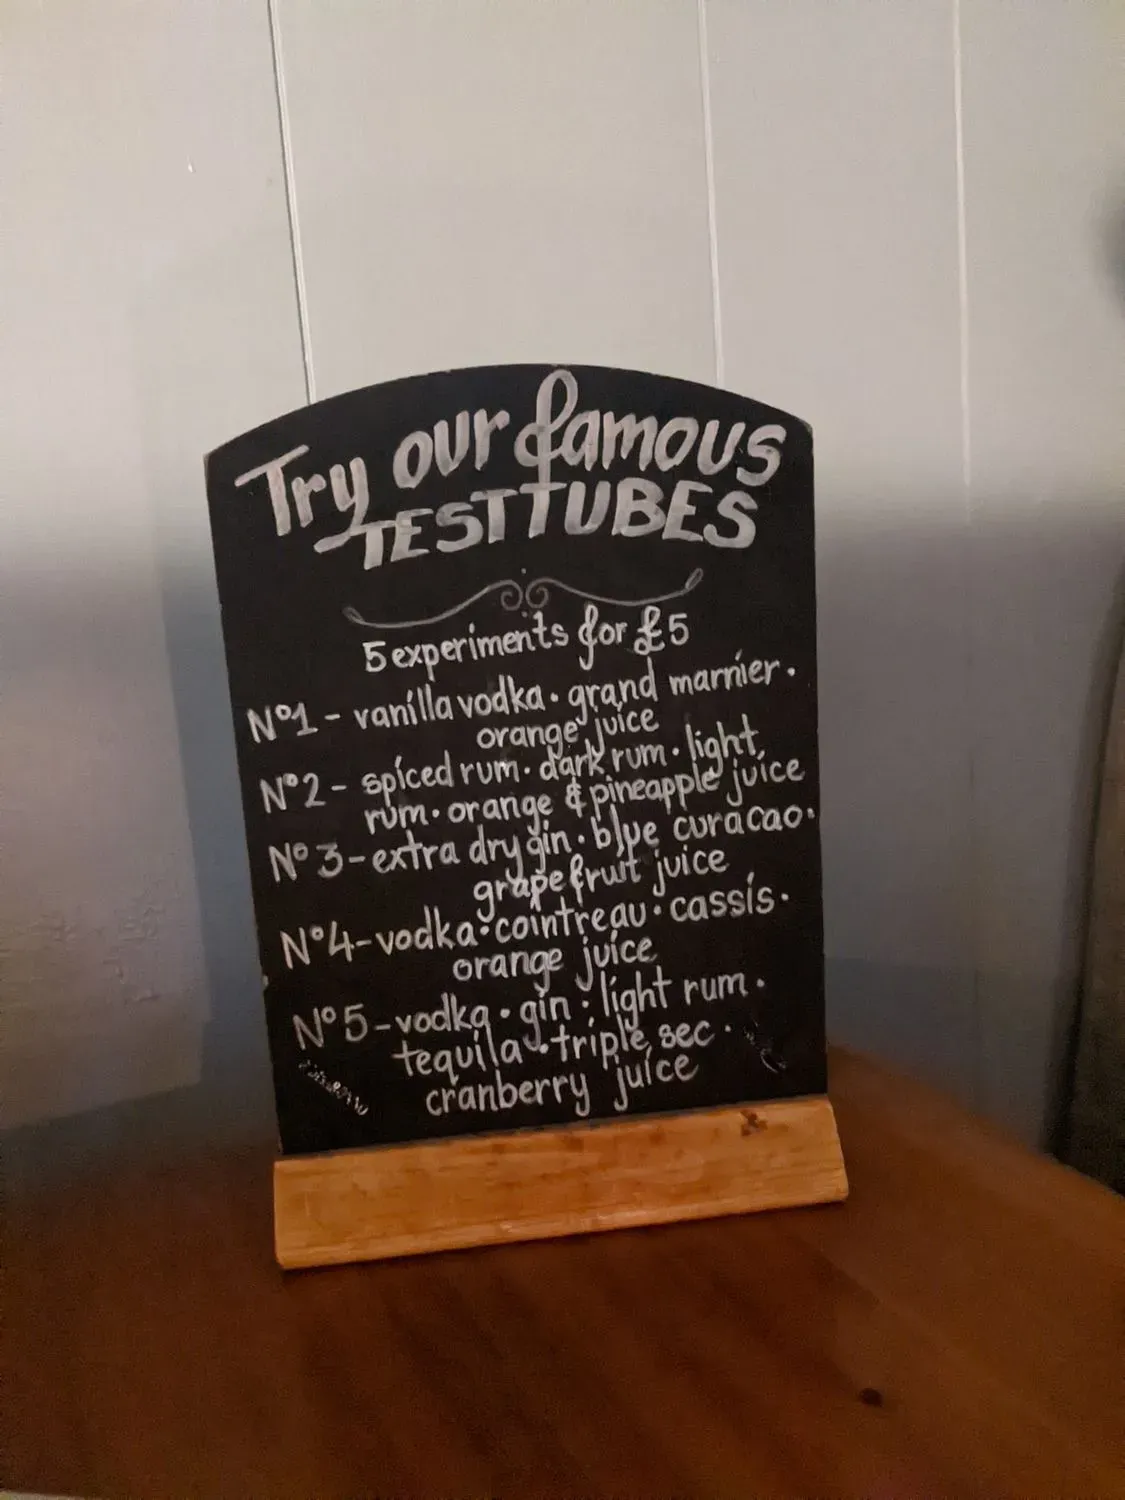 Try our famous
TEST TUBES
5 experiments for £5
Nº1 - vanilla vodka · grand marnier ·
orange juice
Nº2 - spiced rum · dark rum · light
rum · orange & pineapple juice
Nº3 - extra dry gin · blue curacao ·
grapefruit juice
Nº4 - vodka · cointreau · cassis ·
orange juice
Nº5 - vodka · gin · light rum ·
tequila · triple sec ·
cranberry juice